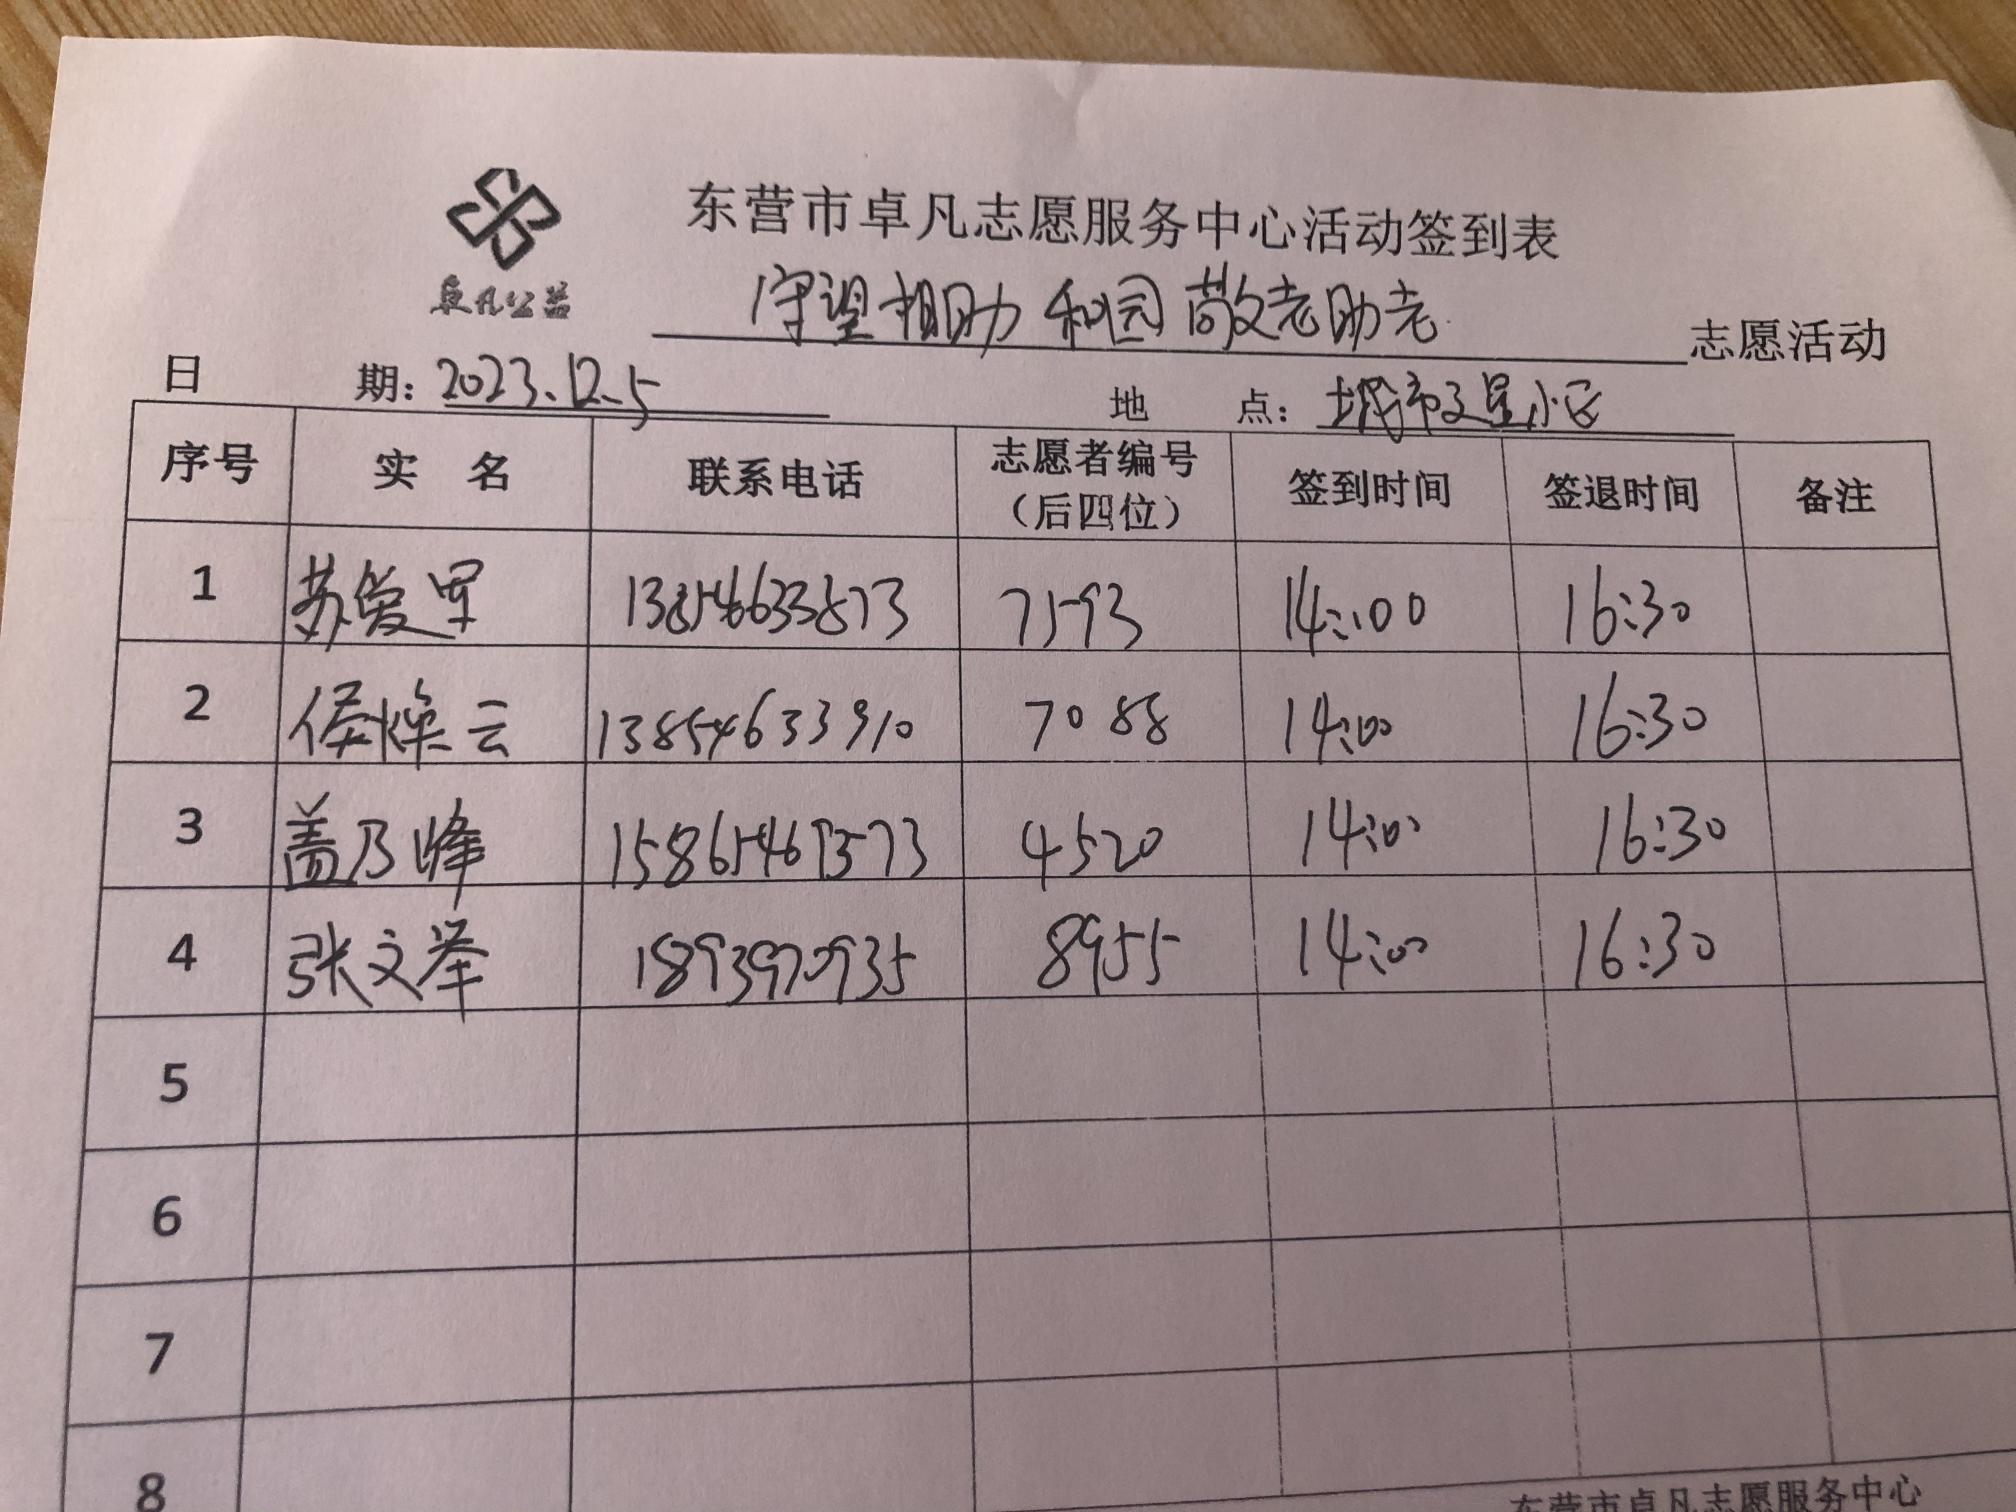 东营市卓凡志愿服务中心活动签到表
卓凡公益
守望相助 和园 敬老助老 志愿活动
日 期：2023.12.5 地 点：城市之星小区
序号 实 名 联系电话 志愿者编号（后四位） 签到时间 签退时间 备注
1 苏爱军 13854633873 7593 14:00 16:30
2 侯焕云 13854633910 7088 14:00 16:30
3 盖乃峰 4520 14:00 16:30
4 张文举 8955 14:00 16:30
5
6
7
8
东营市卓凡志愿服务中心